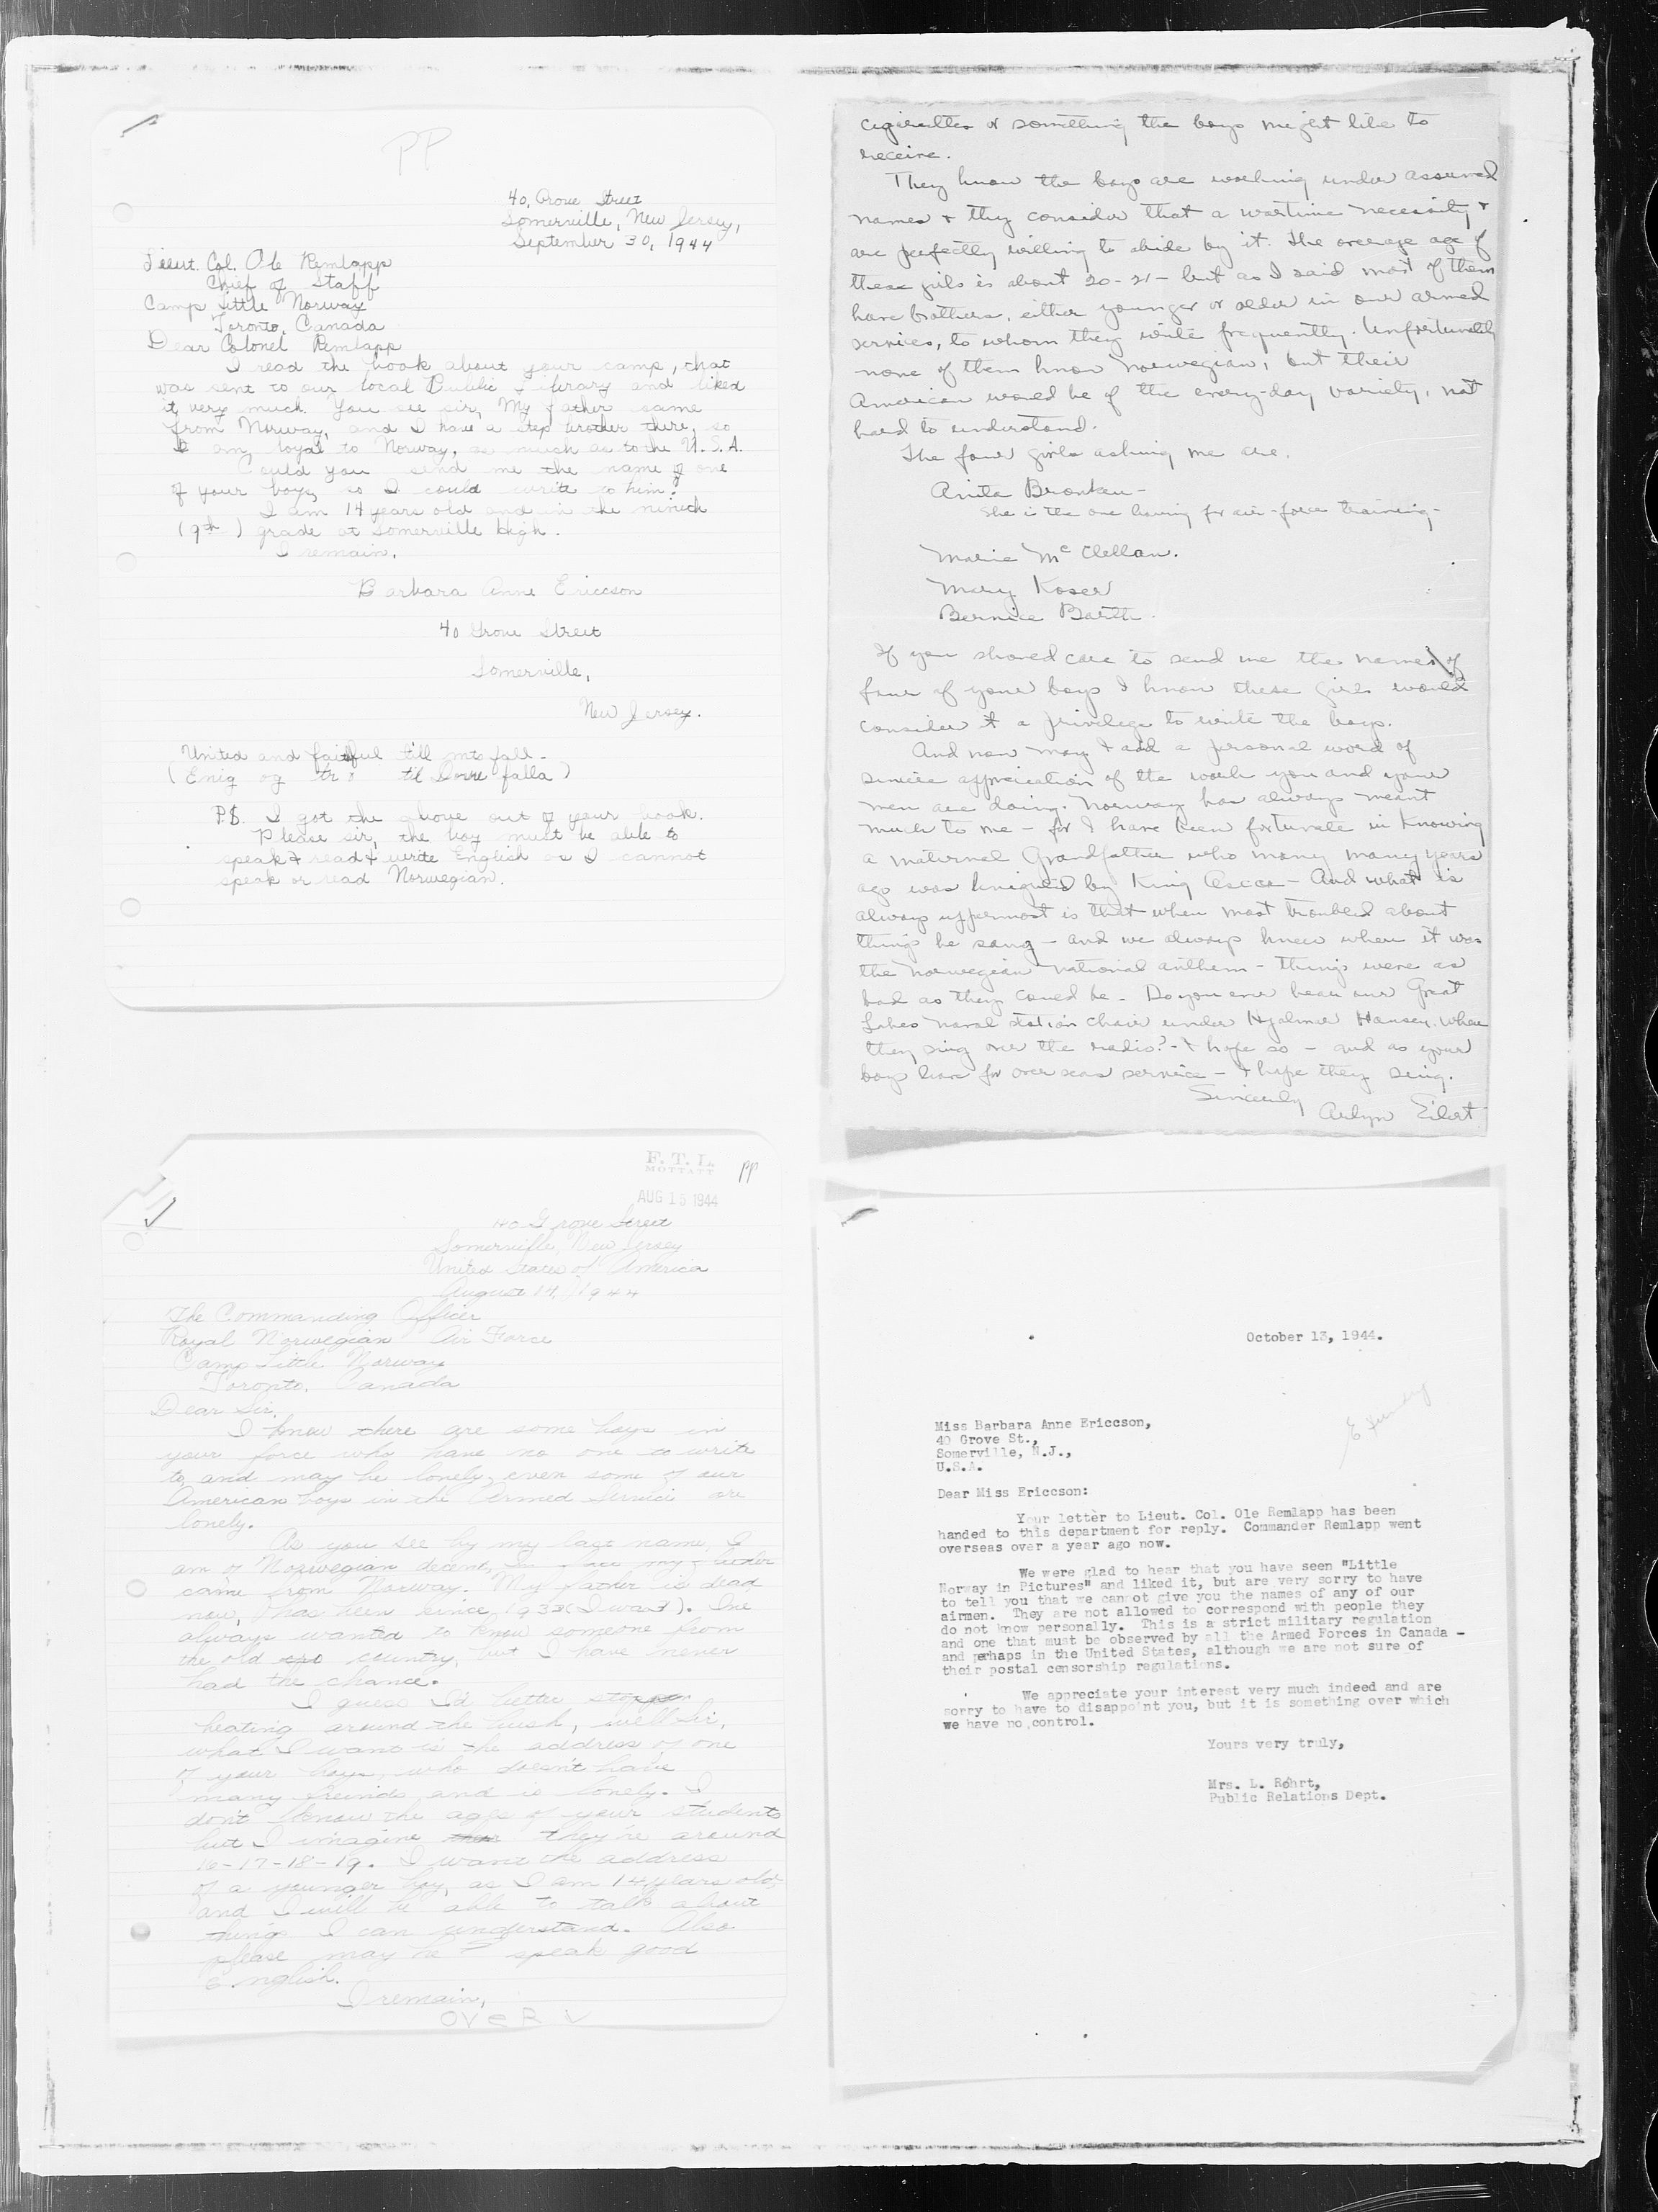 PP
40, Grove Street
Somerville, New Jersey,
September 30, 1944
Lieut. Col. Ole Remlapp
Chief of Staff
Camp Little Norway
Toronto, Canada
Dear Colonel Remlapp
I read the book about your camp, that
was sent to our local Public Library and liked
it very much. You see sir, My father came
from Norway, and I have a step brother there, so
I am loyal to Norway, as much as to the U.S.A.
Could you send me the name of one
of your boys so I could write to him?
I am 14 years old and in the ninth
(9th) grade at Somerville high.
I remain,
Barbara Anne Ericcson
40 Grove Street
Somerville,
New Jersey.
United and faithful till mts fall.
(Enig og tro til Dovre falla)
P.S. I got the above out of your book.
Please sir, the boy must be able to
speak & read & write English as I cannot
speak or read Norwegian.
cigarettes or something the boys might like to
receive.
They know the boys are working under assumed
names & they consider that a wartime necessity &
are perfectly willing to abide by it. The average age of
these girls is about 20-21 - but as I said most of them
have brothers, either younger or older in our armed
services, to whom they write frequently. Unfortunately
none of them know Norwegian, but their
American would be of the every-day variety, not
hard to understand.
The four girls asking me are.
Anita Bronken -
She is the one having for air-force training -
Marie McClellan.
Mary Koser
Bernice Barth.
If you should care to send me the names of
four of your boys I know these girls would
consider it a privilege to write the boys.
And now may I add a personal word of
sincere appreciation of the work you and your
men are doing. Norway has always meant
much to me - for I have been fortunate in knowing
a maternal Grandfather who many many years
ago was knighted by King Oscar - And what is
always uppermost is that when most troubled about
things he sang - and we always knew when it was
the Norwegian national anthem - things were as
bad as they could be - Do you ever hear our Great
Lakes naval station choir under Hjalmar Hansen. when
they sing over the radio? - I hope so - and as your
boys leave for overseas service - I hope they sing.
Sincerely
Arlyn Eilert
F. T. L.
MOTTATT
PP
AUG 15 1944
40 Grove Street
Somerville, New Jersey
United States of America
August 14, 1944
The Commanding Officer
Royal Norwegian Air Force
Camp Little Norway
Toronto, Canada
Dear Sir,
I know there are some boys in
your force who have no one to write
to and may be lonely, even some of our
American boys in the Armed Service are
lonely.
As you see by my last name, I
am of Norwegian decent,
came from Norway. My father is dead
now, has been since 1933 (I was 3). I've
always wanted to know someone from
the old country, but I have never
had the chance.
I guess I'd better stop
beating around the bush, well sir,
what I want is the address of one
of your boys, who doesn't have
many freinds and is lonely. I
don't know the ages of your students
but I imagine they're around
16-17-18-19. I want the address
of a younger boy, as I am 14 years old,
and I will be able to talk about
things I can understand. Also
please may he speak good
English.
I remain,
OVER
October 13, 1944.
Miss Barbara Anne Ericcson,
40 Grove St.,
Somerville, N.J.,
U.S.A.
Dear Miss Ericcson:
Your letter to Lieut. Col. Ole Remlapp has been
handed to this department for reply. Commander Remlapp went
overseas over a year ago now.
We were glad to hear that you have seen "Little
Norway in Pictures" and liked it, but are very sorry to have
to tell you that we cannot give you the names of any of our
airmen. They are not allowed to correspond with people they
do not know personally. This is a strict military regulation
and one that must be observed by all the Armed Forces in Canada -
and perhaps in the United States, although we are not sure of
their postal censorship regulations.
We appreciate your interest very much indeed and are
sorry to have to disappoint you, but it is something over which
we have no control.
Yours very truly,
Mrs. L. Rohrt,
Public Relations Dept.